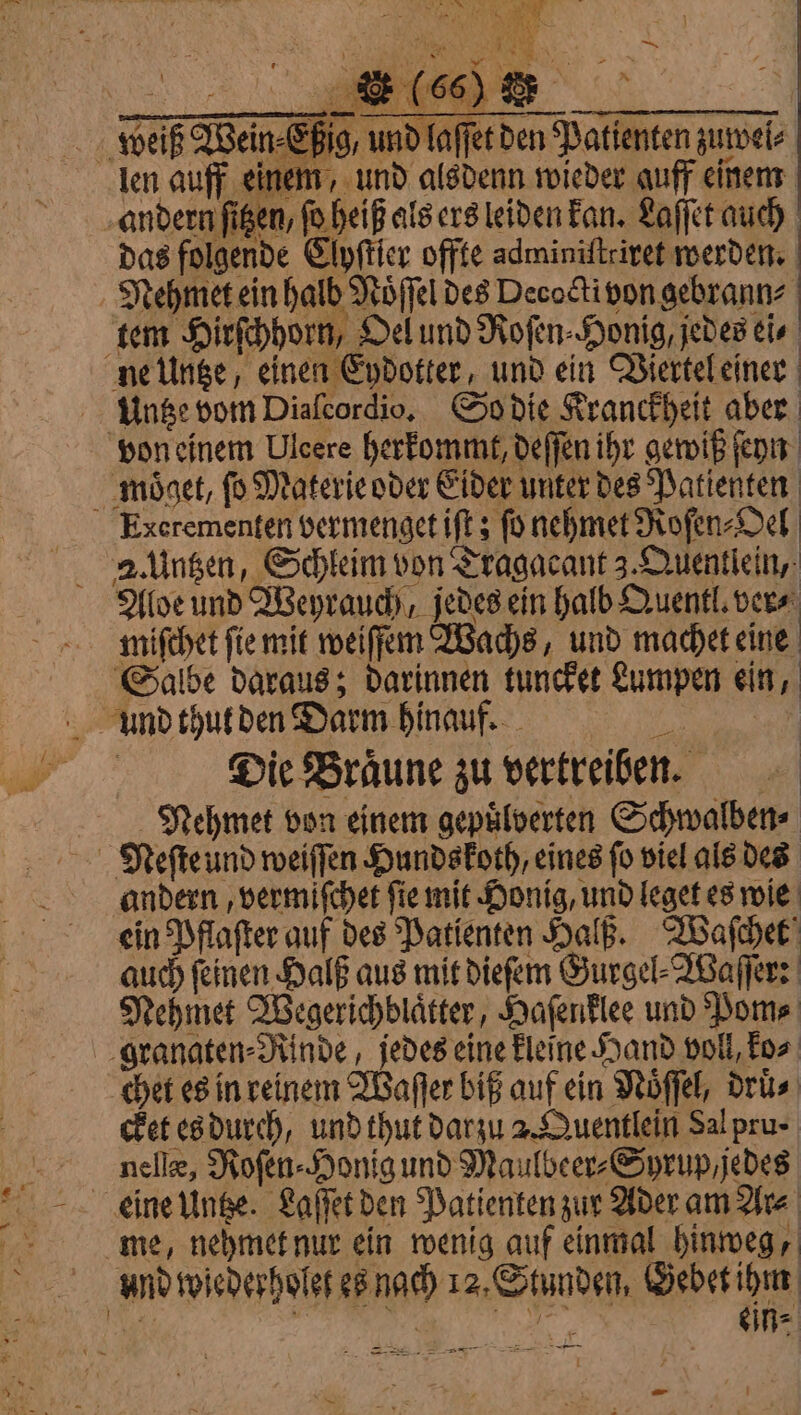 (66)
weiß Wein-Eßig, und laſſet den Patienten zuwei-
len auff einem, und alsdenn wieder auff einem
andern ſitzen, ſo heiß als ers leiden kan. Laſſet auch
das folgende Clyſtier offte adminiſtriret werden.
Nehmet ein halb Noͤſſel des Decocti von gebrann-
tem Hirſchhorn, Oel und Roſen-Honig, jedes ei-
ne Untze, einen Eydotter, und ein Viertel einer
Untze vom Diaſcordio. So die Kranckheit aber
von einem Ulcere herkommt, deſſen ihr gewiß ſeyn
moͤget, ſo Materie oder Eider unter des Patienten
Excrementen vermenget iſt; ſo nehmet Roſen-Oel
2. Untzen, Schleim von Tragacant 3. Quentlein,
Aloe und Weyrauch, jedes ein halb Quentl. ver-
miſchet ſie mit weiſſem Wachs, und machet eine
Salbe daraus; darinnen tuncket Lumpen ein,
und thut den Darm hinauf.
Die Braͤune zu vertreiben.
Nehmet von einem gepuͤlverten Schwalben-
Neſte und weiſſen Hundskoth, eines ſo viel als des
andern, vermiſchet ſie mit Honig, und leget es wie
ein Pflaſter auf des Patienten Halß. Waſchet
auch ſeinen Halß aus mit dieſem Gurgel-Waſſer:
Nehmet Wegerichblaͤtter, Haſenklee und Pom-
granaten-Rinde, jedes eine kleine Hand voll, ko-
chet es in reinem Waſſer biß auf ein Noͤſſel, druͤ-
cket es durch, und thut darzu 2. Quentlein Sal pru-
nellæ, Roſen-Honig und Maulbeer-Syrup, jedes
eine Untze. Laſſet den Patienten zur Ader am Ar-
me, nehmet nur ein wenig auf einmal hinweg,
und wiederholet es nach 12. Stunden. Gebet ihm
ein-